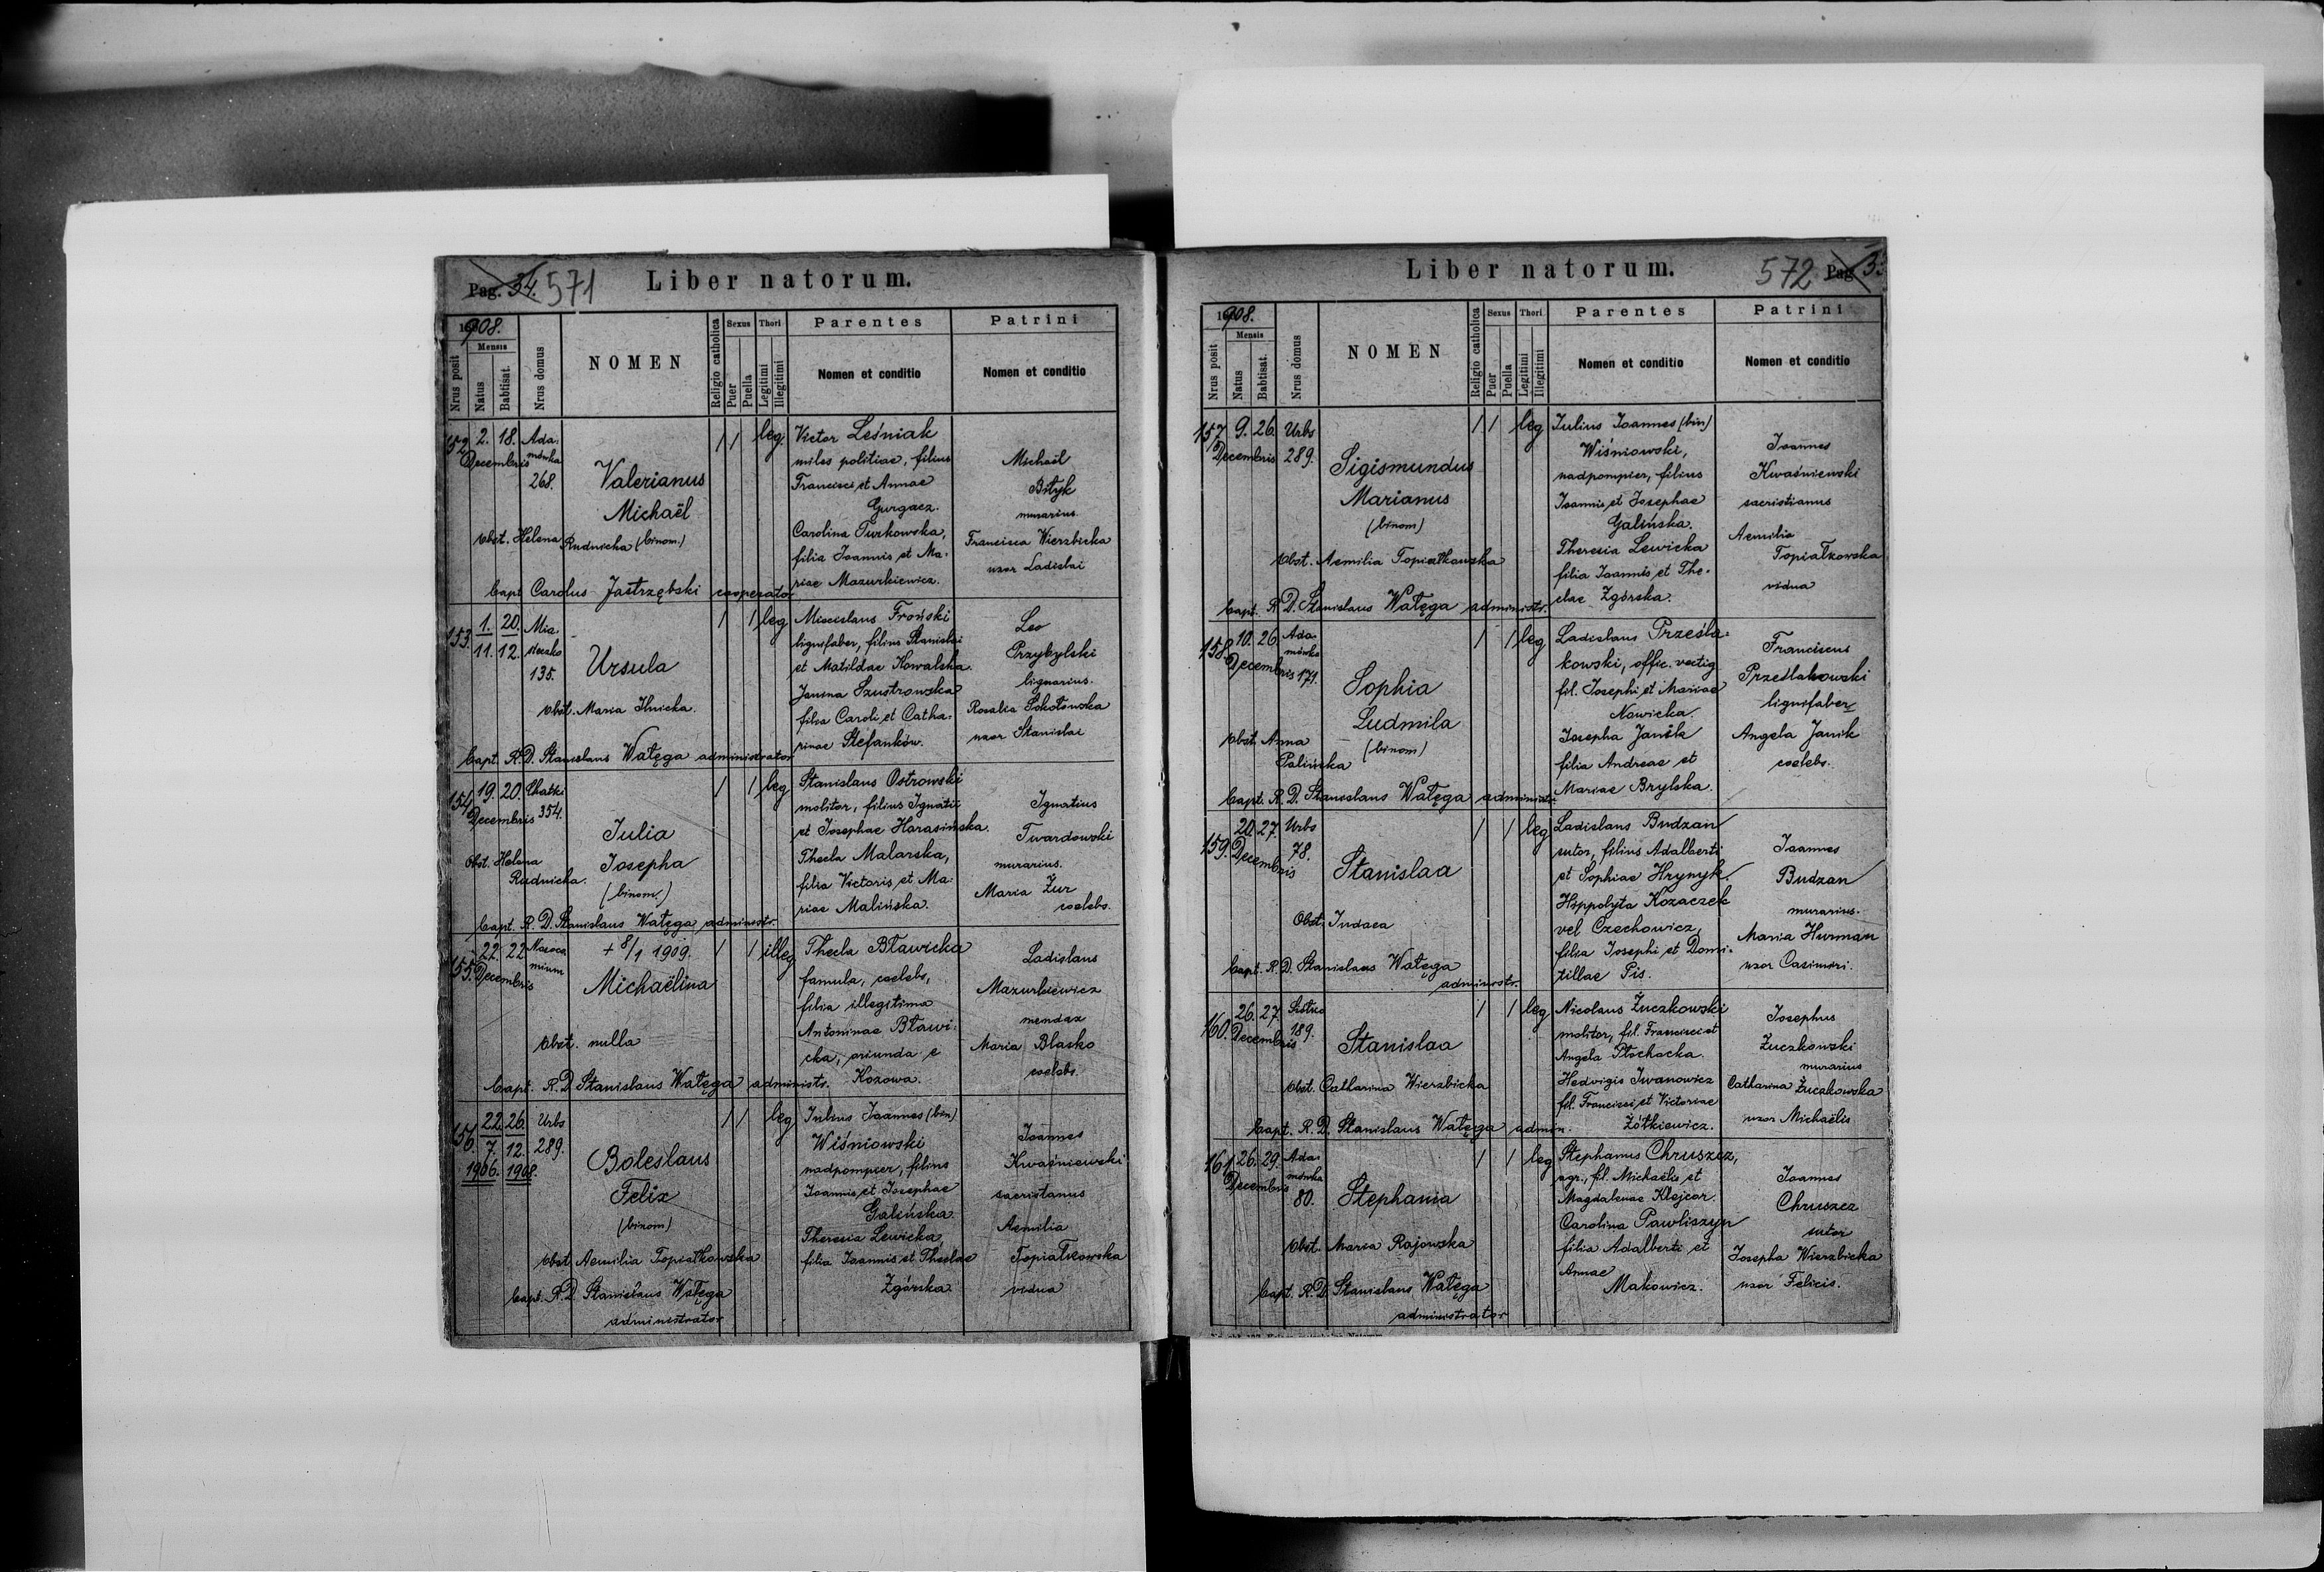 Pag. 34. 571 Liber natorum.
1908.
Nrus posit
Mensis
Natus
Babtisat.
Nrus domus
NOMEN
Religio catholica
Sexus
Puer
Puella
Thori
Legitimi
Illegitimi
Parentes
Nomen et conditio
Patrini
Nomen et conditio
152 2. 18. Decembris
Ada-
mówka
268.
Valerianus
Michaël
(binom.)
Obst. Helena Rudnicka
Bapt Carolus Jastrzębski cooperator
1 1 leg.
Victor Leśniak
miles politiae, filius
Francisci et Annae
Gurgacz.
Carolina Turkowska,
filia Joannis et Ma-
riae Mazurkiewicz.
Michaël
Bityk
murarius.
Francisca Wierzbicka
uxor Ladislai
153. 1. 20.
11. 12.
Mia-
steczko
135.
Ursula
Obst. Maria Ilnicka.
Bapt. R.D. Stanislaus Watęga administrator
1 1 leg
Miecislaus Froński
lignifaber, filius Stanislai
et Matildae Kowalska.
Janina Szustrowska
filia Caroli et Catha-
rinae Stefanków.
Leo
Przybylski
lignarius.
Rosalia Sokołowska
uxor Stanislai
154 19. 20. Decembris
Chatki
354.
Julia
Josepha
(binom)
Obst. Helena
Rudnicka.
Bapt. R. D. Stanislaus Watęga administr.
1 1 leg
Stanislaus Ostrowski
molitor, filius Ignatii
et Josephae Harasińska.
Thecla Malarska,
filia Victoris et Ma-
riae Malińska.
Ignatius
Twardowski
murarius.
Maria Żur
coelebs.
155. 22. 22 Decembris
Nosoco
mium
+ 8/1 1909.
Michaëlina
Obst. nulla
Bapt. R.D Stanislaus Watęga administr.
1 1 illeg
Thecla Bławicka
famula, coelebs,
filia illegitima
Antoninae Bławi-
cka, oriunda e
Kozowa.
Ladislaus
Mazurkiewicz
mendax
Maria Blasko
coelebs.
156. 22. 26.
7. 12.
1906. 1908.
Urbs
289.
Boleslaus
Felix
(binom)
Obst Aemilia Topiałkowska
Bapt. R.D Stanislaus Watęga
administrator
1 1 leg
Julius Joannes (bin)
Wiśniowski
nadpompier, filius
Joannis et Josephae
Galińska.
Theresia Lewicka,
filia Joannis et Theclae
Zgórska.
Joannes
Kwaśniewski
sacristianus
Aemilia
Topiałkowska
vidua
Liber natorum. 572 Pag 3
1908.
Nrus posit
Mensis
Natus
Babtisat.
Nrus domus
NOMEN
Religio catholica
Sexus
Puer
Puella
Thori
Legitimi
Illegitimi
Parentes
Nomen et conditio
Patrini
Nomen et conditio
157 9. 26. Decembris
Urbs
289.
Sigismundus
Marianus
(binom)
Obst. Aemilia Topiałkowska
Bapt. R D. Stanislaus Watęga administr.
1 1 leg
Julius Joannes (bin)
Wiśniowski,
nadpompier, filius
Joannis et Josephae
Galińska.
Theresia Lewicka
filia Joannis et The-
clae Zgórska.
Joannes
Kwaśniewski
sacristianus
Aemilia
Topiałkowska
vidua
158. 10. 26 Decembris
Ada-
mówka
171.
Sophia
Ludmila
(binom)
Obst. Anna
Palińska
Bapt. R. D. Stanislaus Watęga administr.
1 1 leg
Ladislaus Prześla-
kowski, offic. vectig
fil. Josephi et Mariae
Nowicka.
Josepha Janik
filia Andreae et
Mariae Brylska.
Franciscus
Prześlakowski
lignifaber
Angela Janik
coelebs.
159. 20. 27. Decembris
Urbs
78.
Stanislaa
Obst. Judaea
Bapt. R. D. Stanislaus Watęga
administr.
1 1 leg
Ladislaus Budzan
sutor, filius Adalberti
et Sophiae Hrynyk.
Hippolyta Kozaczek
vel Czechowicz,
filia Josephi et Domi-
tillae Pis.
Joannes
Budzan
murarius.
Maria Hurman
uxor Casimiri.
160. 26. 27. Decembris
189.
Stanislaa
Obst. Catharina Wierzbicka
Bapt. R. D. Stanislaus Watęga admin.
1 1 leg
Nicolaus Żuczkowski
molitor, fil. Francisci et
Angela Płochacka.
Hedvigis Iwanowicz
fil. Francisci et Victoriae
Żółkiewicz.
Josephus
Żuczkowski
murarius
Catharina Żuczkowska
uxor Michaëlis
161 26. 29. Decembris
Ada-
mówka
80.
Stephania
Obst. Maria Rajowska
Bapt. R. D Stanislaus Watęga
administrator
1 1 leg
Stephanus Chruszcz,
agr., fil. Michaëlis et
Magdalenae Klejcar.
Carolina Pawliszyn
filia Adalberti et
Annae
Makowicz.
Joannes
Chruszcz
sutor
Josepha Wierzbicka
uxor Felicis.